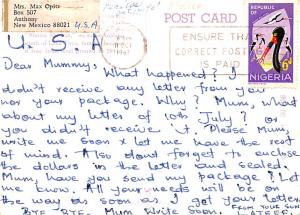 Mrs. Max Opitz
Box 507
Anthony
New Mexico 88021
U.S.A
U. S. A
POST CARD
ENSURE THA
CORRECT POST
IS PAID
REPUBLIC OF
6d
NIGERIA
OCT
1967
Dear Mummy, What happened? I
didn't receive any letter from you
nor your package. Why? Mum, what
about my letter of 10th July? or
you didn't receive it. Please Mum,
write me soon & let me have the rest
of mind. Also don't forget to enclose
the dollars in the letter and sealed.
Mum have you send my package? Let
me know. All your needs will be on
the way as soon as I get your letter.
BYE-BYE. Mum Write Soon.
FROM YOUR SON